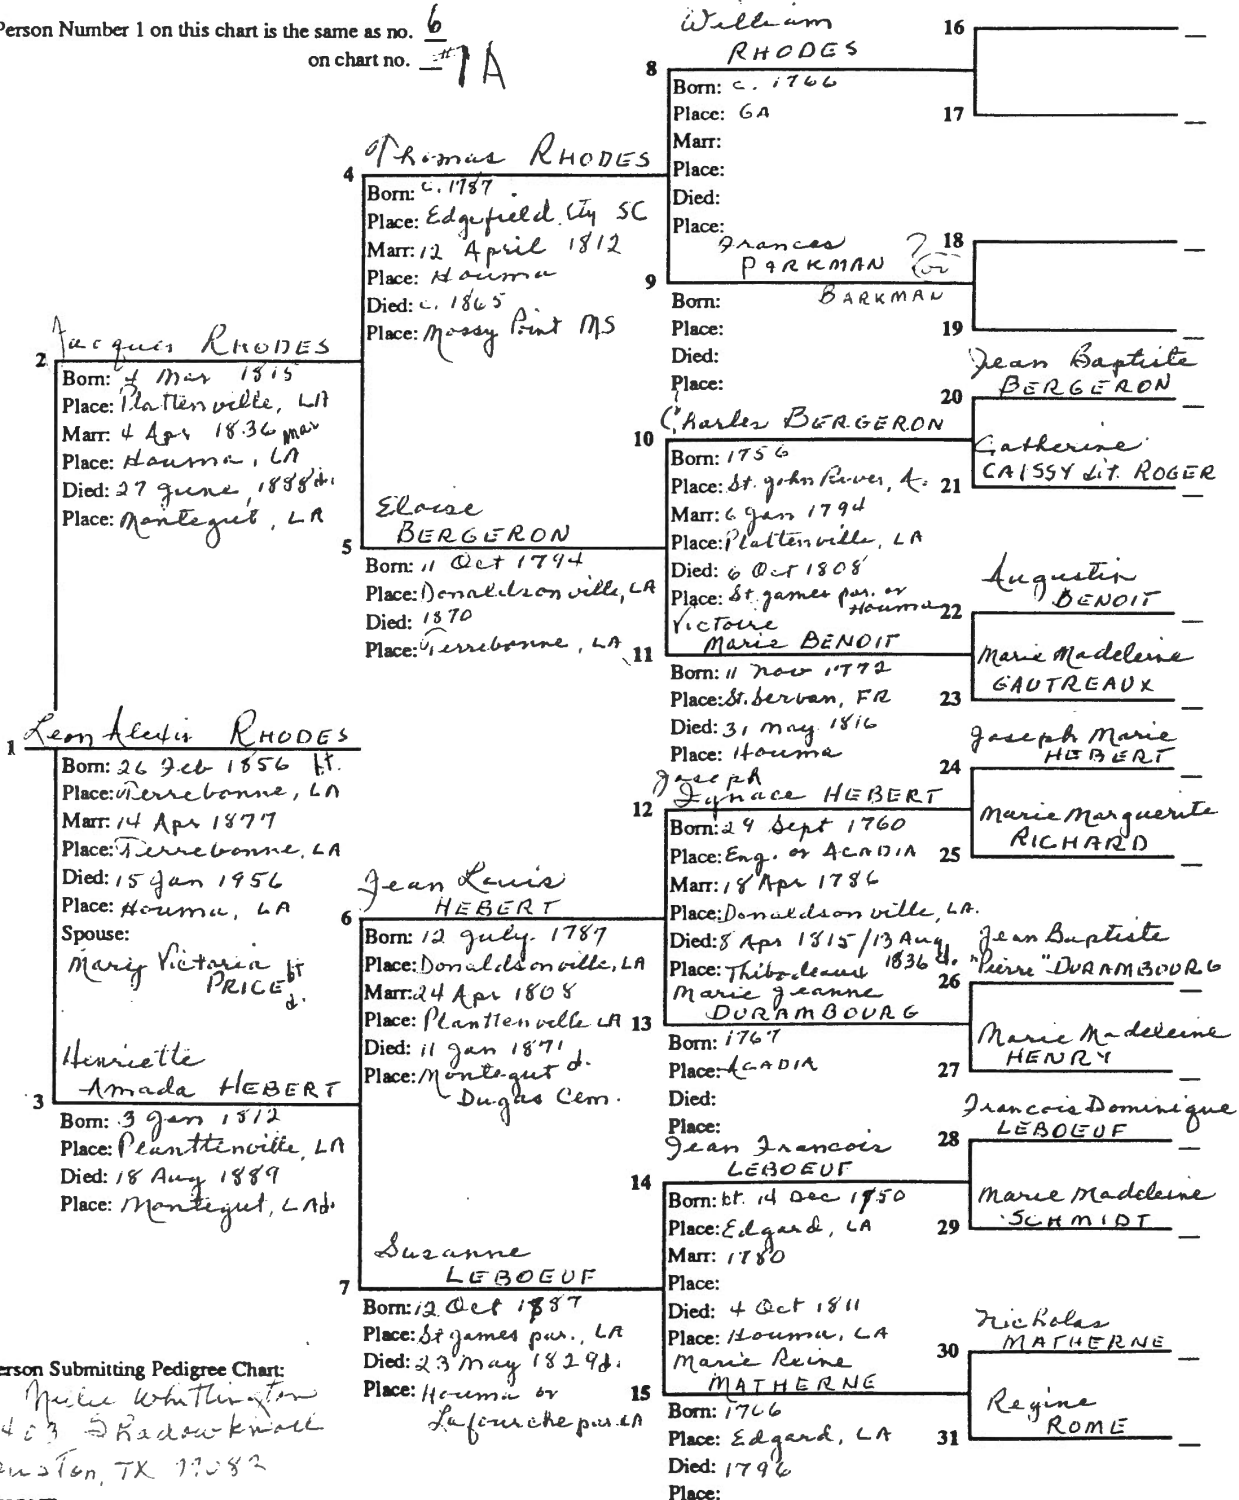 Person Number 1 on this chart is the same as no. 6
on chart no. #1 A
1
Leon Alexis RHODES
Born: 26 Feb 1856 bt.
Place: Terrebonne, LA
Marr: 14 Apr 1877
Place: Terrebonne, LA
Died: 15 Jan 1956
Place: Houma, LA
Spouse:
Mary Victoria bt
PRICE d.
2
Jacques RHODES
Born: 4 Mar 1815
Place: Plattenville, LA
Marr: 4 Apr 1836 mar
Place: Houma, LA
Died: 27 June, 1888 d.
Place: Montegut, LA
3
Henriette
Amada HEBERT
Born: 3 Jan 1812
Place: Planttenville, LA
Died: 18 Aug 1889
Place: Montegut, LA d.
4
Thomas RHODES
Born: c. 1787
Place: Edgefield Cty SC
Marr: 12 April 1812
Place: Houma
Died: c. 1865
Place: Mossy Point MS
5
Eloise
BERGERON
Born: 11 Oct 1794
Place: Donaldsonville, LA
Died: 1870
Place: Terrebonne, LA
6
Jean Louis
HEBERT
Born: 12 July 1787
Place: Donaldsonville, LA
Marr: 24 Apr 1808
Place: Planttenville LA
Died: 11 Jan 1871
Place: Montegut d.
Dugas Cem.
7
Suzanne
LEBOEUF
Born: 12 Oct 1787
Place: St James par., LA
Died: 23 May 1829 d.
Place: Houma or
Lafourche par. LA
8
William
RHODES
Born: c. 1766
Place: GA
Marr:
Place:
Died:
Place:
9
Frances ?
PARKMAN or
BARKMAN
Born:
Place:
Died:
Place:
10
Charles BERGERON
Born: 1756
Place: St. John River, A.
Marr: 6 Jan 1794
Place: Plattenville, LA
Died: 6 Oct 1808
Place: St. James par. or
Houma
11
Victoire
Marie BENOIT
Born: 11 Nov 1772
Place: St. Servan, FR
Died: 31 May 1816
Place: Houma
12
Joseph
Ignace HEBERT
Born: 29 Sept 1760
Place: Eng. or ACADIA
Marr: 18 Apr 1786
Place: Donaldsonville, LA.
Died: 8 Apr 1815/13 Aug
1836 d.
Place: Thibodeaux
13
Marie Jeanne
DURAMBOURG
Born: 1767
Place: ACADIA
Died:
Place:
14
Jean Francois
LEBOEUF
Born: bt. 14 Dec 1750
Place: Edgard, LA
Marr: 1780
Place:
Died: 4 Oct 1811
Place: Houma, LA
15
Marie Reine
MATHERNE
Born: 1766
Place: Edgard, LA
Died: 1796
Place:
16
17
18
19
20
Jean Baptiste
BERGERON
21
Catherine
CAISSY dit. ROGER
22
Augustin
BENOIT
23
Marie Madeleine
GAUTREAUX
24
Joseph Marie
HEBERT
25
Marie Marguerite
RICHARD
26
Jean Baptiste
"Pierre" DURAMBOURG
27
Marie Madeleine
HENRY
28
Francois Dominique
LEBOEUF
29
Marie Madeleine
SCHMIDT
30
Nicholas
MATHERNE
31
Regine
ROME
erson Submitting Pedigree Chart:
Whittington
Shadowknoll
ouston, TX 77082